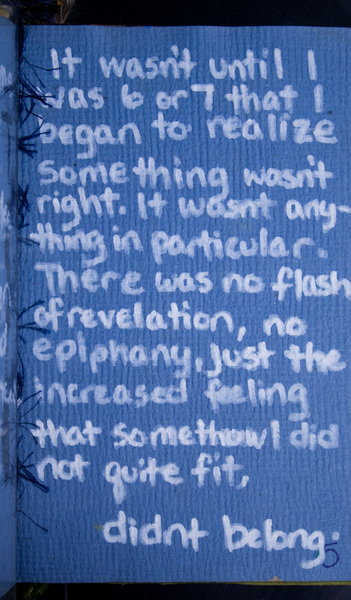 It wasn't until I
was 6 or 7 that I
began to realize
something wasn't
right. It wasn't any-
thing in particular.
There was no flash
of revelation, no
epiphany, just the
increased feeling
that somethow I did
not quite fit,
didnt belong.
5